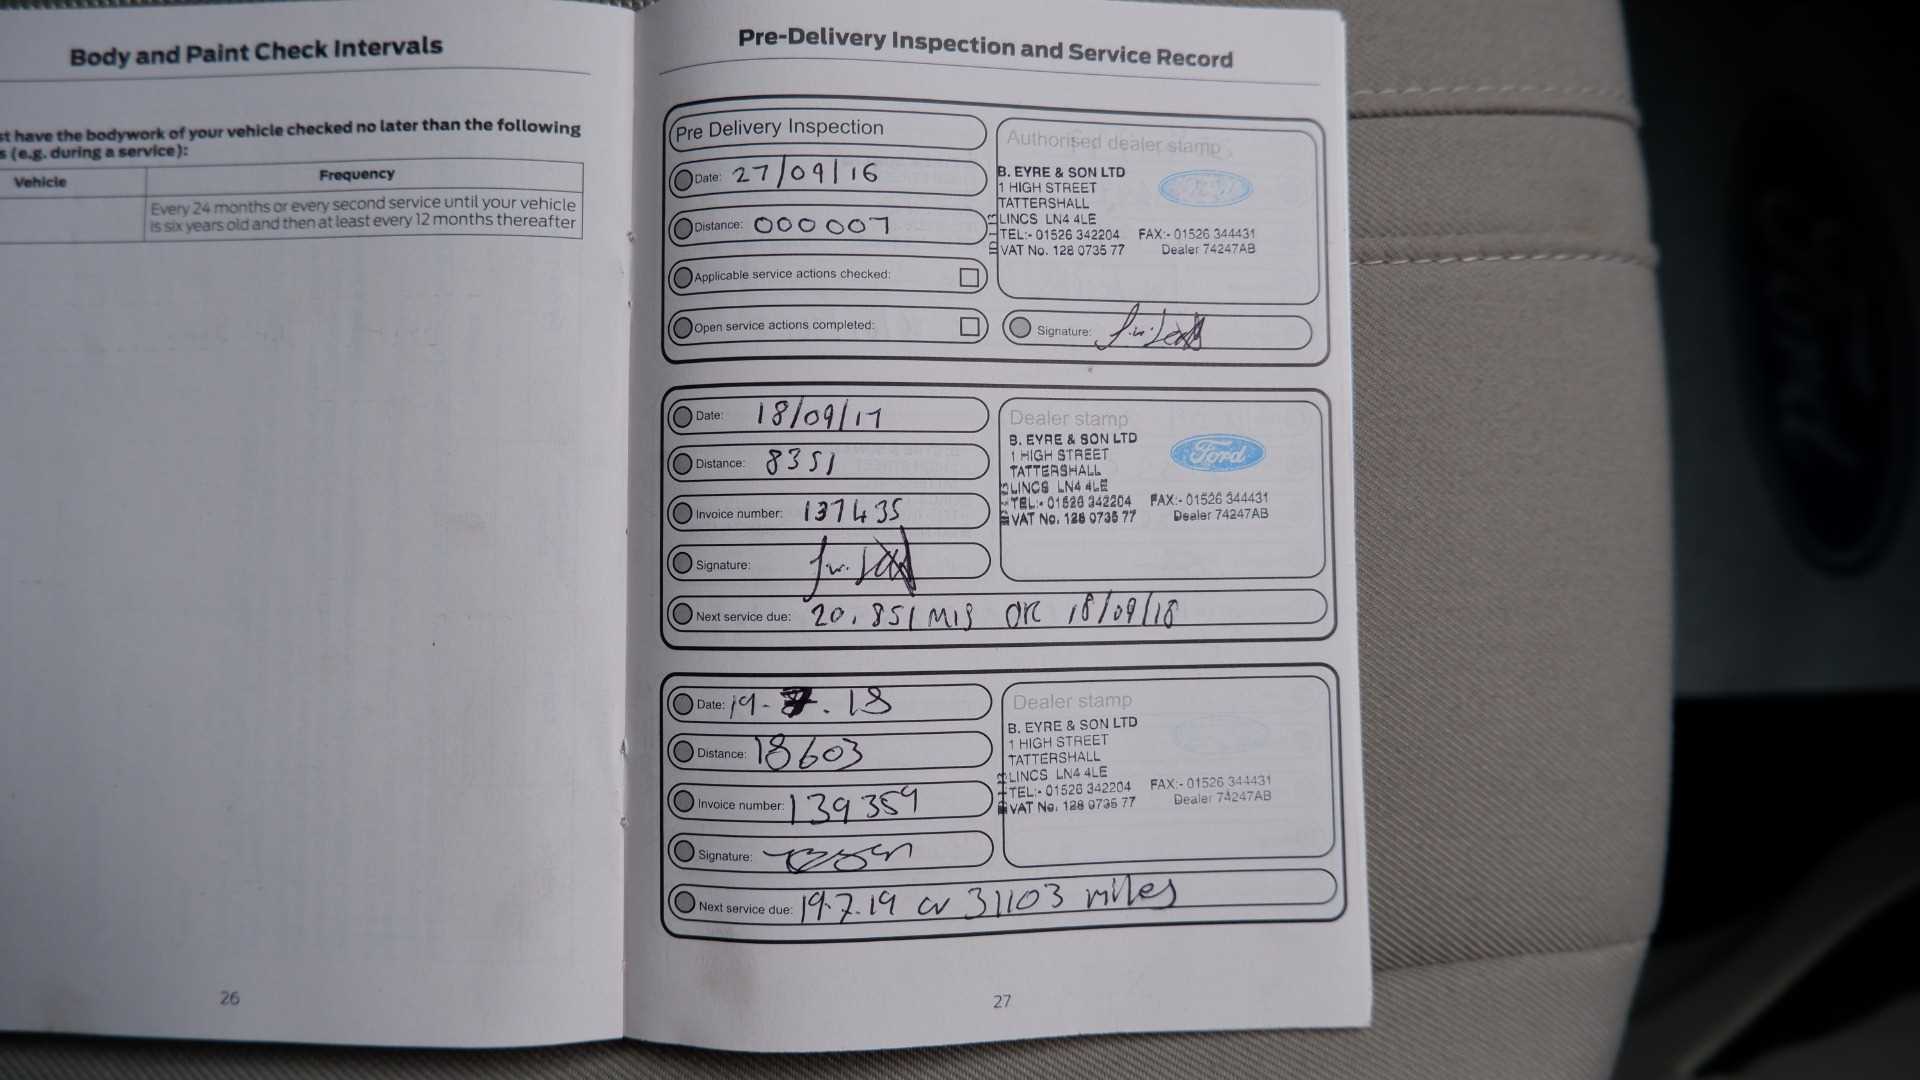 Body and Paint Check Intervals
st have the bodywork of your vehicle checked no later than the following
s (e.g. during a service):
Vehicle
Frequency
Every 24 months or every second service until your vehicle
is six years old and then at least every 12 months thereafter
26
Pre-Delivery Inspection and Service Record
Pre Delivery Inspection
Date: 27/09/16
Distance: 000007
Applicable service actions checked:
Open service actions completed:
Authorised dealer stamp
B. EYRE & SON LTD
1 HIGH STREET
TATTERSHALL
LINCS LN4 4LE
TEL:- 01526 342204 FAX:- 01526 344431
VAT No. 128 0735 77 Dealer 74247AB
Ford
Signature:
Date: 18/09/17
Distance: 8351
Invoice number: 137435
Signature:
Next service due: 20,851 MIS OR 18/09/18
Dealer stamp
B. EYRE & SON LTD
1 HIGH STREET
TATTERSHALL
LINCS LN4 4LE
TEL:- 01526 342204 FAX:- 01526 344431
VAT No. 128 0735 77 Dealer 74247AB
Ford
Date: 19.7.18
Distance: 18603
Invoice number: 139359
Signature:
Next service due: 19.7.19 or 31103 miles
Dealer stamp
B. EYRE & SON LTD
1 HIGH STREET
TATTERSHALL
LINCS LN4 4LE
TEL:- 01526 342204 FAX:- 01526 344431
VAT No. 128 0735 77 Dealer 74247AB
27
Ford